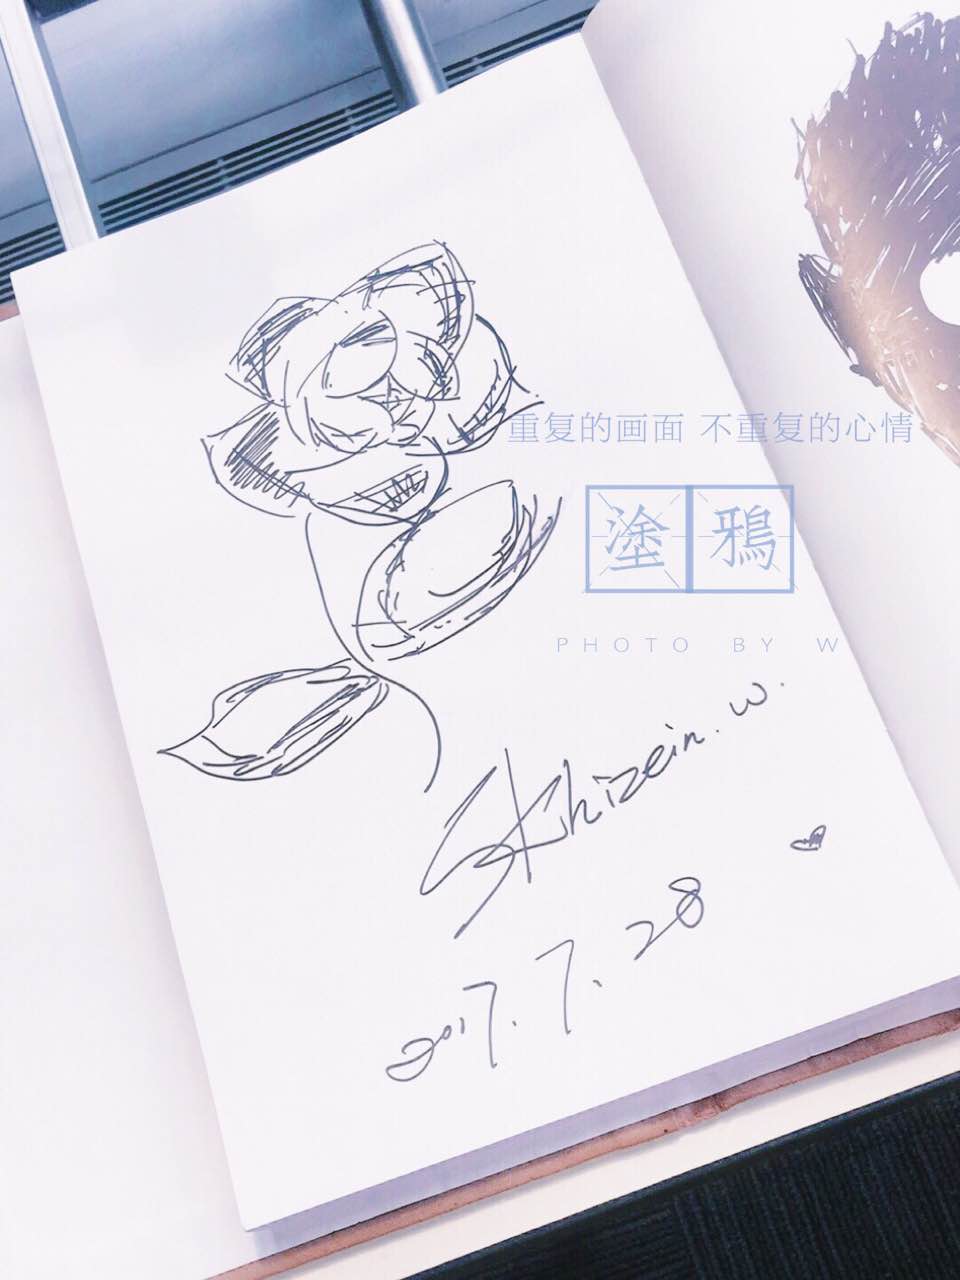 重复的画面 不重复的心情
塗鴉
PHOTO BY W
Skhizein.w.
2017.7.28